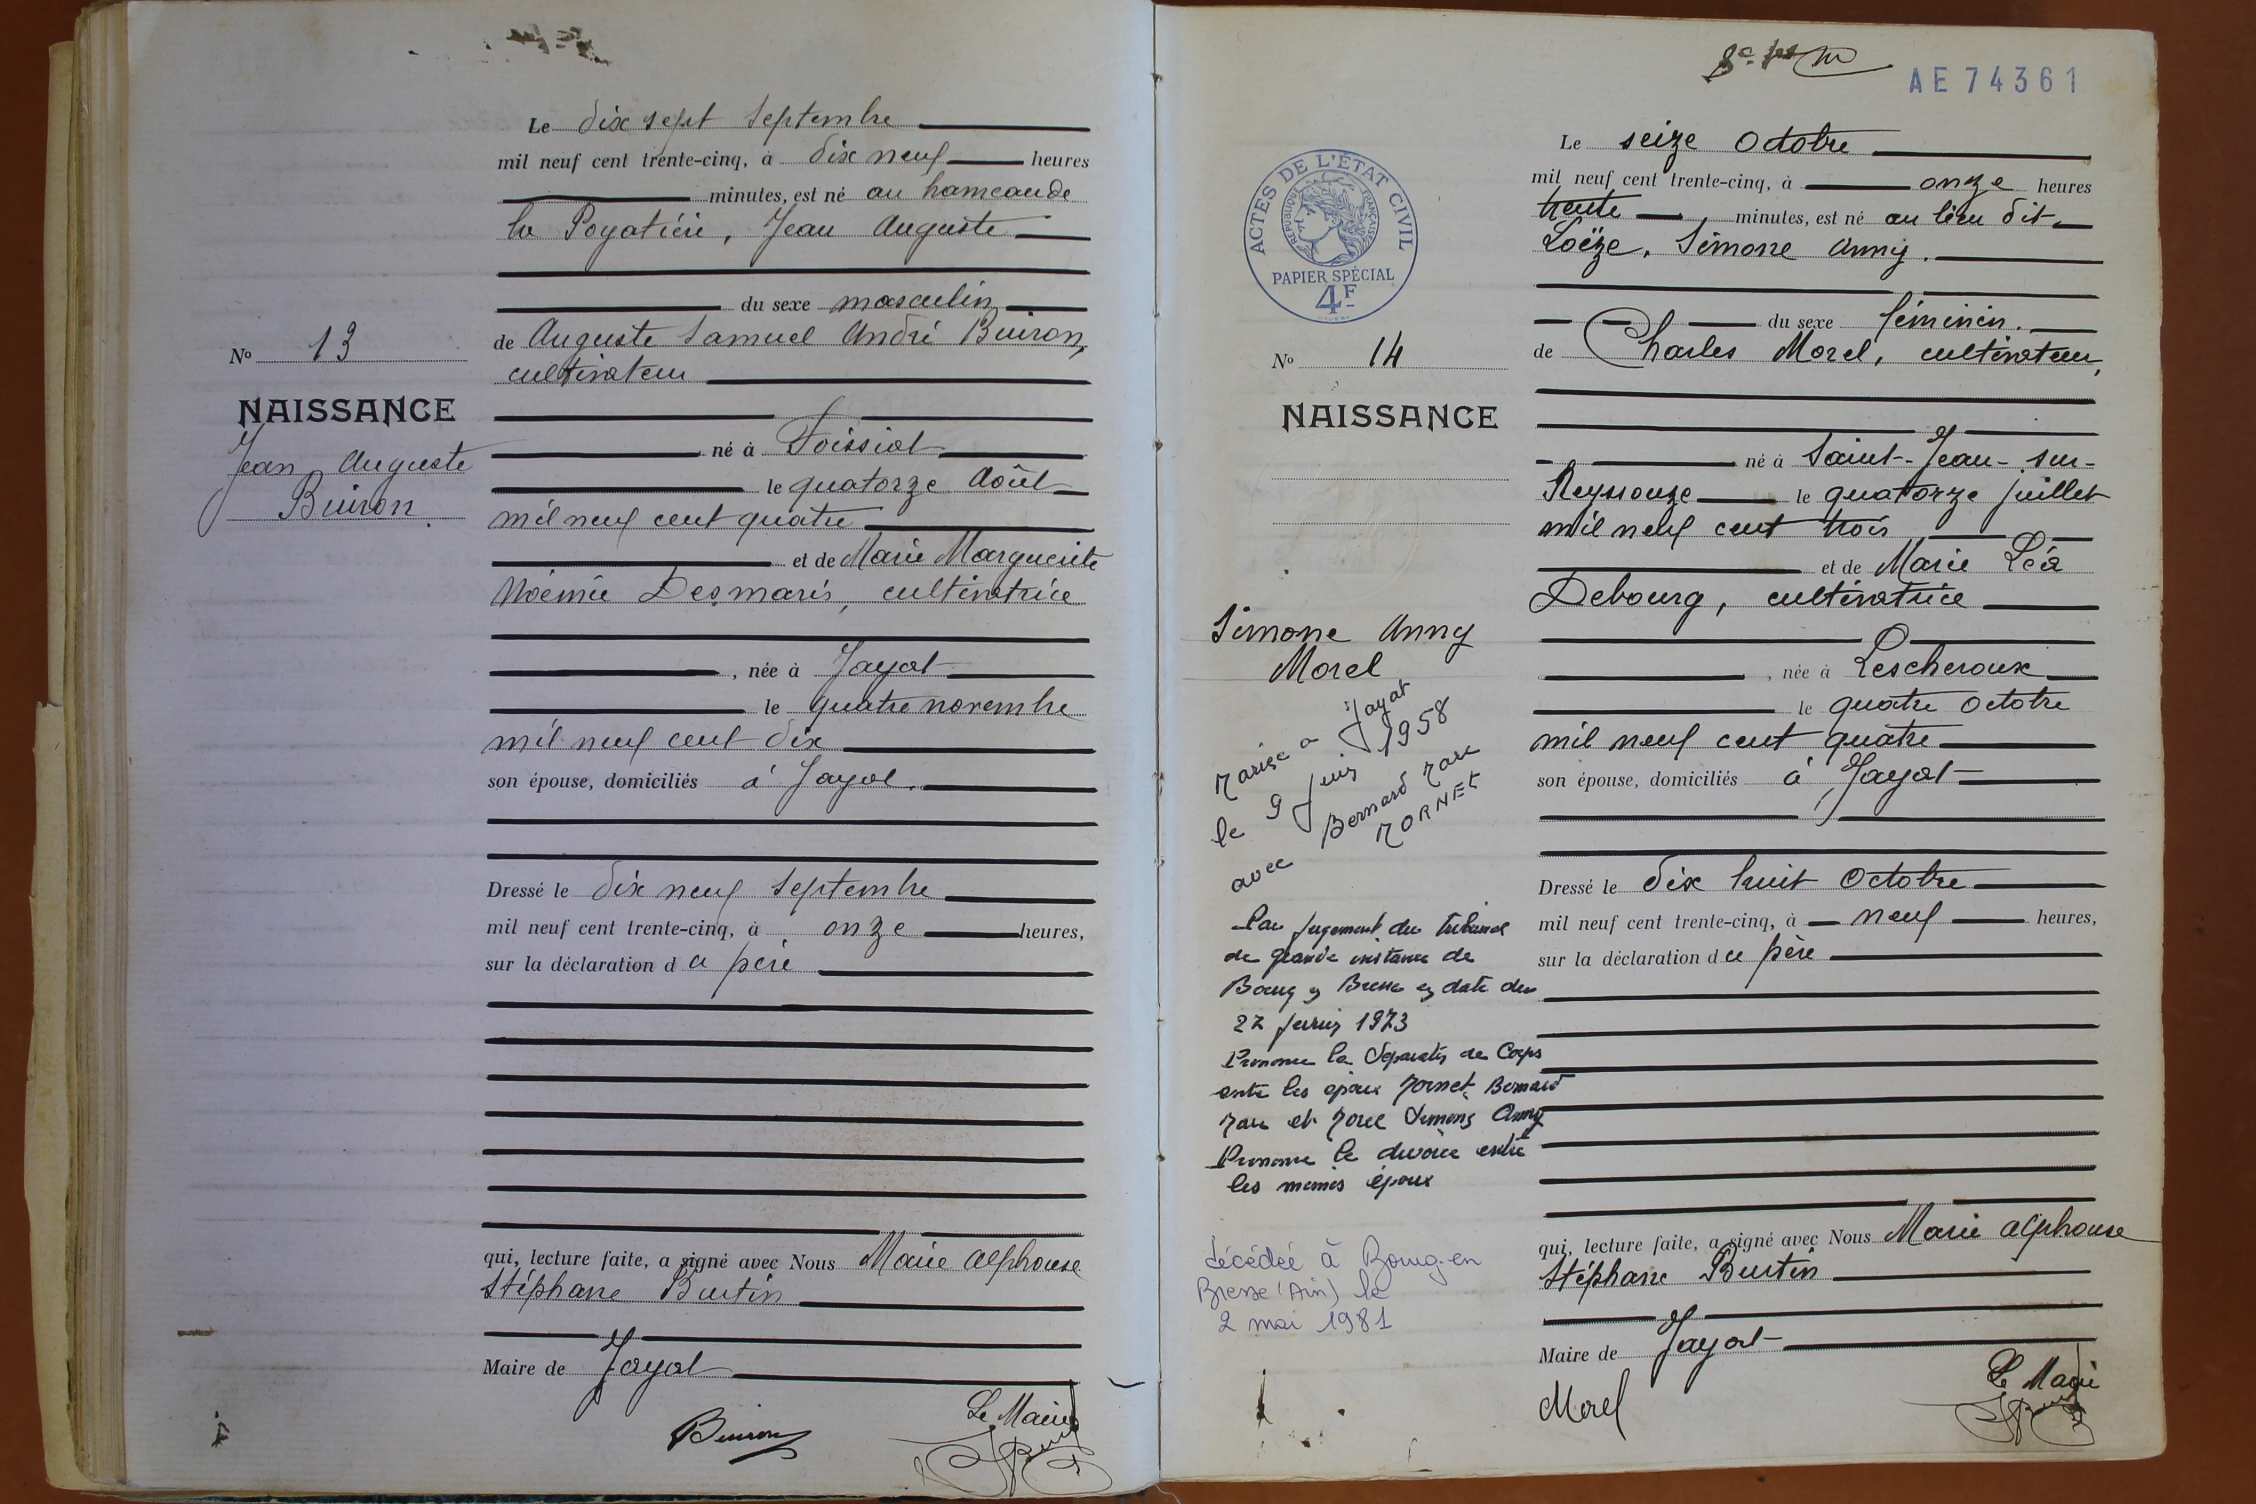 Le dix sept Septembre
mil neuf cent trente-cinq, à dix neuf heures
minutes, est né au hameau de
la Poyatière, Jean Auguste
du sexe masculin
de Auguste Samuel André Buiron,
cultivateur
né à Foissiat
le quatorze Août
mil neuf cent quatre
et de Marie Marguerite
Noémie Desmaris, cultivatrice
, née à Jayat
le quatre novembre
mil neuf cent dix
son épouse, domiciliés à Jayat.
Dressé le dix neuf Septembre
mil neuf cent trente-cinq, à onze heures,
sur la déclaration du père
qui, lecture faite, a signé avec Nous Marie Alphonse
Stéphane Burtin
Maire de Jayat
Le Maire
Buiron
No 13
NAISSANCE
Jean Auguste
Buiron.
AE 74361
ACTES DE L'ÉTAT CIVIL
RÉPUBLIQUE FRANÇAISE
PAPIER SPÉCIAL
4F
No 14
NAISSANCE
Simone Anny
Morel
Mariée à Jayat
le 9 Juin 1958
avec Bernard Marc
MORNET
Par jugement du tribunal
de grande instance de
Bourg en Bresse en date du
27 février 1973
Prononce la Séparation de Corps
entre les époux Mornet Bernard
Marc et Morel Simone Anny
Prononce le divorce entre
les mêmes époux
décédée à Bourg-en
Bresse (Ain) le
2 mai 1981
Le seize Octobre
mil neuf cent trente-cinq, à onze heures
trente minutes, est né au lieu dit
Loëze, Simone Anny.
du sexe féminin.
de Charles Morel, cultivateur,
né à Saint-Jean-sur-
Reyssouze le quatorze juillet
mil neuf cent trois
et de Marie Léa
Debourg, cultivatrice
, née à Lescheroux
le quatre Octobre
mil neuf cent quatre
son épouse, domiciliés à Jayat
Dressé le dix huit Octobre
mil neuf cent trente-cinq, à neuf heures,
sur la déclaration du père
qui, lecture faite, a signé avec Nous Marie Alphonse
Stéphane Burtin
Maire de Jayat
Le Maire
Morel